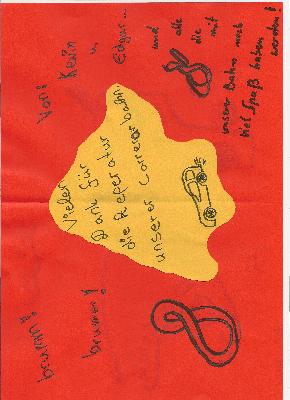 brumm!!
brumm!
Vielen
Dank für
die Reperatur
unserer Carrerabahn.
Von: Kevin
u
Edgar...
und
alle
die
mit
unserer Bahn noch
viel Spaß haben
werden!